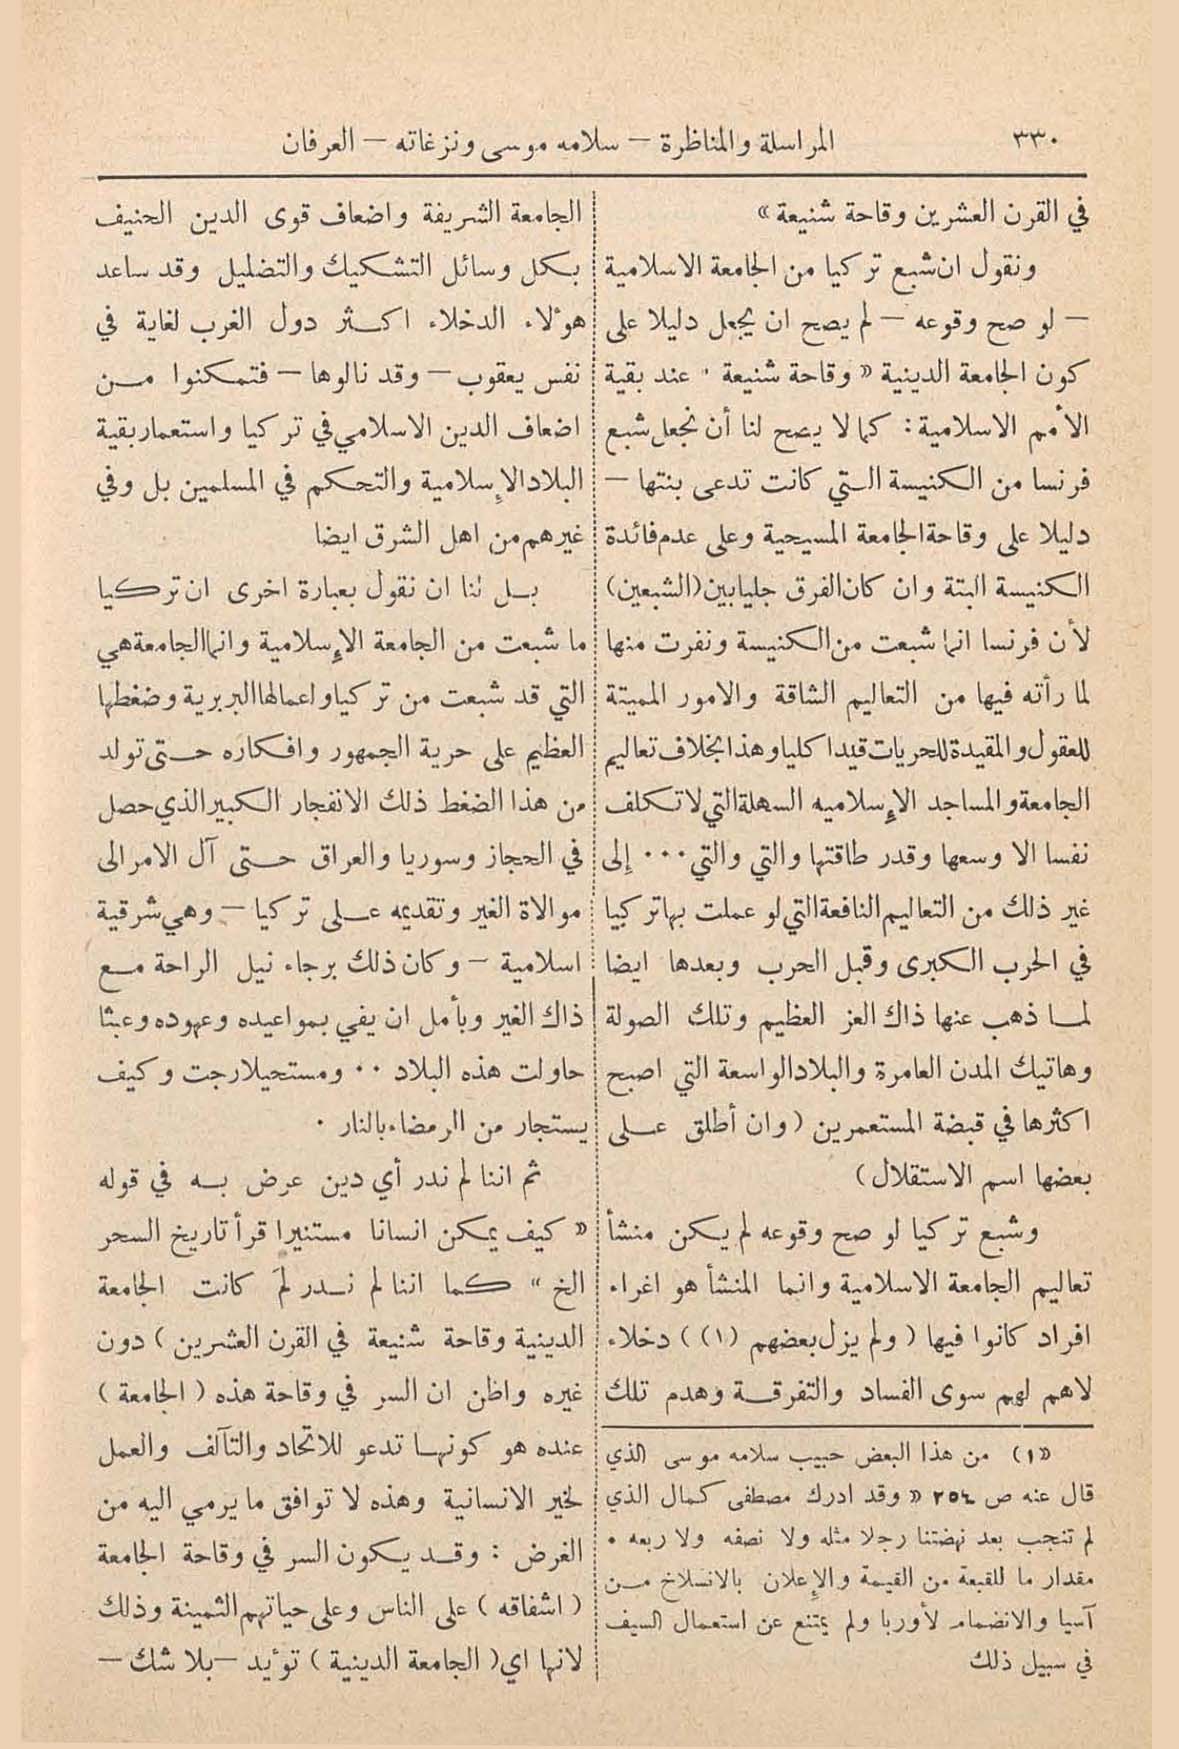 ٣٣٠
المراسلة والمناظرة – سلامه موسى ونزغاته – العرفان
في القرن العشرين وقاحة شنيعة »
ونقول ان شبع تركيا من الجامعة الاسلامية
– لو صح وقوعه – لم يصح ان يجعل دليلا على
كون الجامعة الدينية « وقاحة شنيعة ' عند بقية
الأمم الاسلامية : كما لا يصح لنا أن نجعل شبع
فرنسا من الكنيسة التي كانت تدعى بنتها –
دليلا على وقاحة الجامعة المسيحية وعلى عدم فائدة
الكنيسة البتة وان كان الفرق جليا بين (الشبعين)
لأن فرنسا انما شبعت من الكنيسة ونفرت منها
لما رأته فيها من التعاليم الشاقة والامور المميتة
للعقول والمقيدة للحريات قيدا كليا وهذا بخلاف تعاليم
الجامعة والمساجد الإسلاميه السهلة التي لا تكلف
نفسا الا وسعها وقدر طاقتها والتي والتي ... إلى
غير ذلك من التعاليم النافعة التي لو عملت بها تركيا
في الحرب الكبرى وقبل الحرب وبعدها ايضا
لما ذهب عنها ذاك العز العظيم وتلك الصولة
وهاتيك المدن العامرة والبلاد الواسعة التي اصبح
اكثرها في قبضة المستعمرين ( وان أطلق على
بعضها اسم الاستقلال )
وشبع تركيا لو صح وقوعه لم يكن منشأ
تعاليم الجامعة الاسلامية وانما المنشأ هو اغراء
افراد كانوا فيها ( ولم يزل بعضهم (١) ) دخلاء
لا هم لهم سوى الفساد والتفرقة وهدم تلك
«١) من هذا البعض حبيب سلامه موسى الذي
قال عنه ص ٢٥٤ « وقد ادرك مصطفى كمال الذي
لم تنجب بعد نهضتنا رجلا مثله ولا نصفه ولا ربعه .
مقدار ما للقبعة من القيمة والإعلان بالانسلاخ من
آسيا والانضمام لأوربا ولم يمتنع عن استعمال السيف
في سبيل ذلك
الجامعة الشريفة واضعاف قوى الدين الحنيف
بكل وسائل التشكيك والتضليل وقد ساعد
هؤلاء الدخلاء اكثر دول الغرب لغاية في
نفس يعقوب – وقد نالوها – فتمكنوا من
اضعاف الدين الاسلامي في تركيا واستعمار بقية
البلاد الإسلامية والتحكم في المسلمين بل وفي
غيرهم من اهل الشرق ايضا
بل لنا ان نقول بعبارة اخرى ان تركيا
ما شبعت من الجامعة الإسلامية وانما الجامعة هي
التي قد شبعت من تركيا واعمالها البربرية وضغطها
العظيم على حرية الجمهور وافكاره حتى تولد
من هذا الضغط ذلك الانفجار الكبير الذي حصل
في الحجاز وسوريا والعراق حتى آل الامر الى
موالاة الغير وتقديمه على تركيا – وهي شرقية
اسلامية – وكان ذلك برجاء نيل الراحة مع
ذاك الغير وبأمل ان يفي بمواعيده وعهوده وعبثا
حاولت هذه البلاد .. ومستحيلا رجت وكيف
يستجار من الرمضاء بالنار .
ثم اننا لم ندر أي دين عرض به في قوله
« كيف يمكن انسانا مستنيرا قرأ تاريخ السحر
الخ » كما اننا لم ندر لمَ كانت الجامعة
الدينية وقاحة شنيعة في القرن العشرين ) دون
غيره واظن ان السر في وقاحة هذه ( الجامعة )
عنده هو كونها تدعو للاتحاد والتآلف والعمل
لخير الانسانية وهذه لا توافق ما يرمي اليه من
الغرض : وقد يكون السر في وقاحة الجامعة
( اشفاقه ) على الناس وعلى حياتهم الثمينة وذلك
لانها اي ( الجامعة الدينية ) تؤيد – بلا شك –